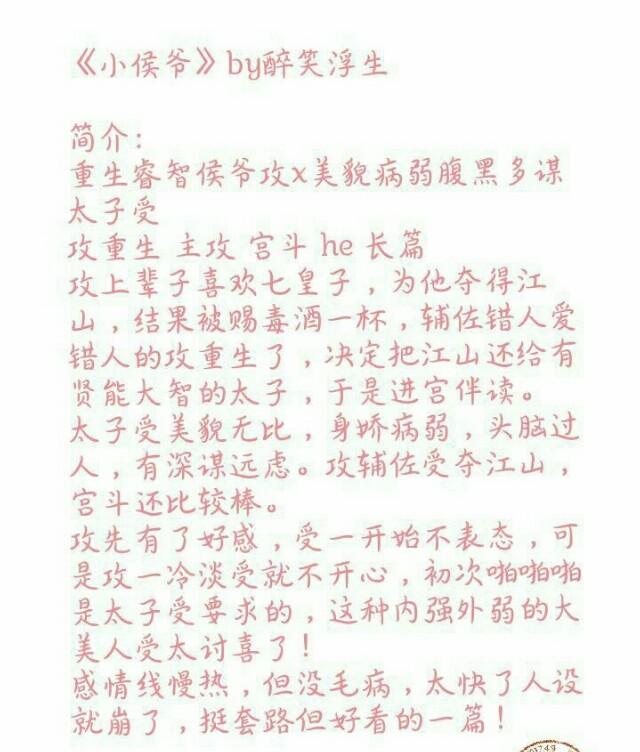 《小侯爷》by醉笑浮生
简介:
重生睿智侯爷攻x美貌病弱腹黑多谋
太子受
攻重生 主攻 宫斗 he 长篇
攻上辈子喜欢七皇子，为他夺得江
山，结果被赐毒酒一杯，辅佐错人爱
错人的攻重生了，决定把江山还给有
贤能大智的太子，于是进宫伴读。
太子受美貌无比，身娇病弱，头脑过
人，有深谋远虑。攻辅佐受夺江山，
宫斗还比较棒。
攻先有了好感，受一开始不表态，可
是攻一冷淡受就不开心，初次啪啪啪
是太子受要求的，这种内强外弱的大
美人受太讨喜了！
感情线慢热，但没毛病，太快了人设
就崩了，挺套路但好看的一篇！